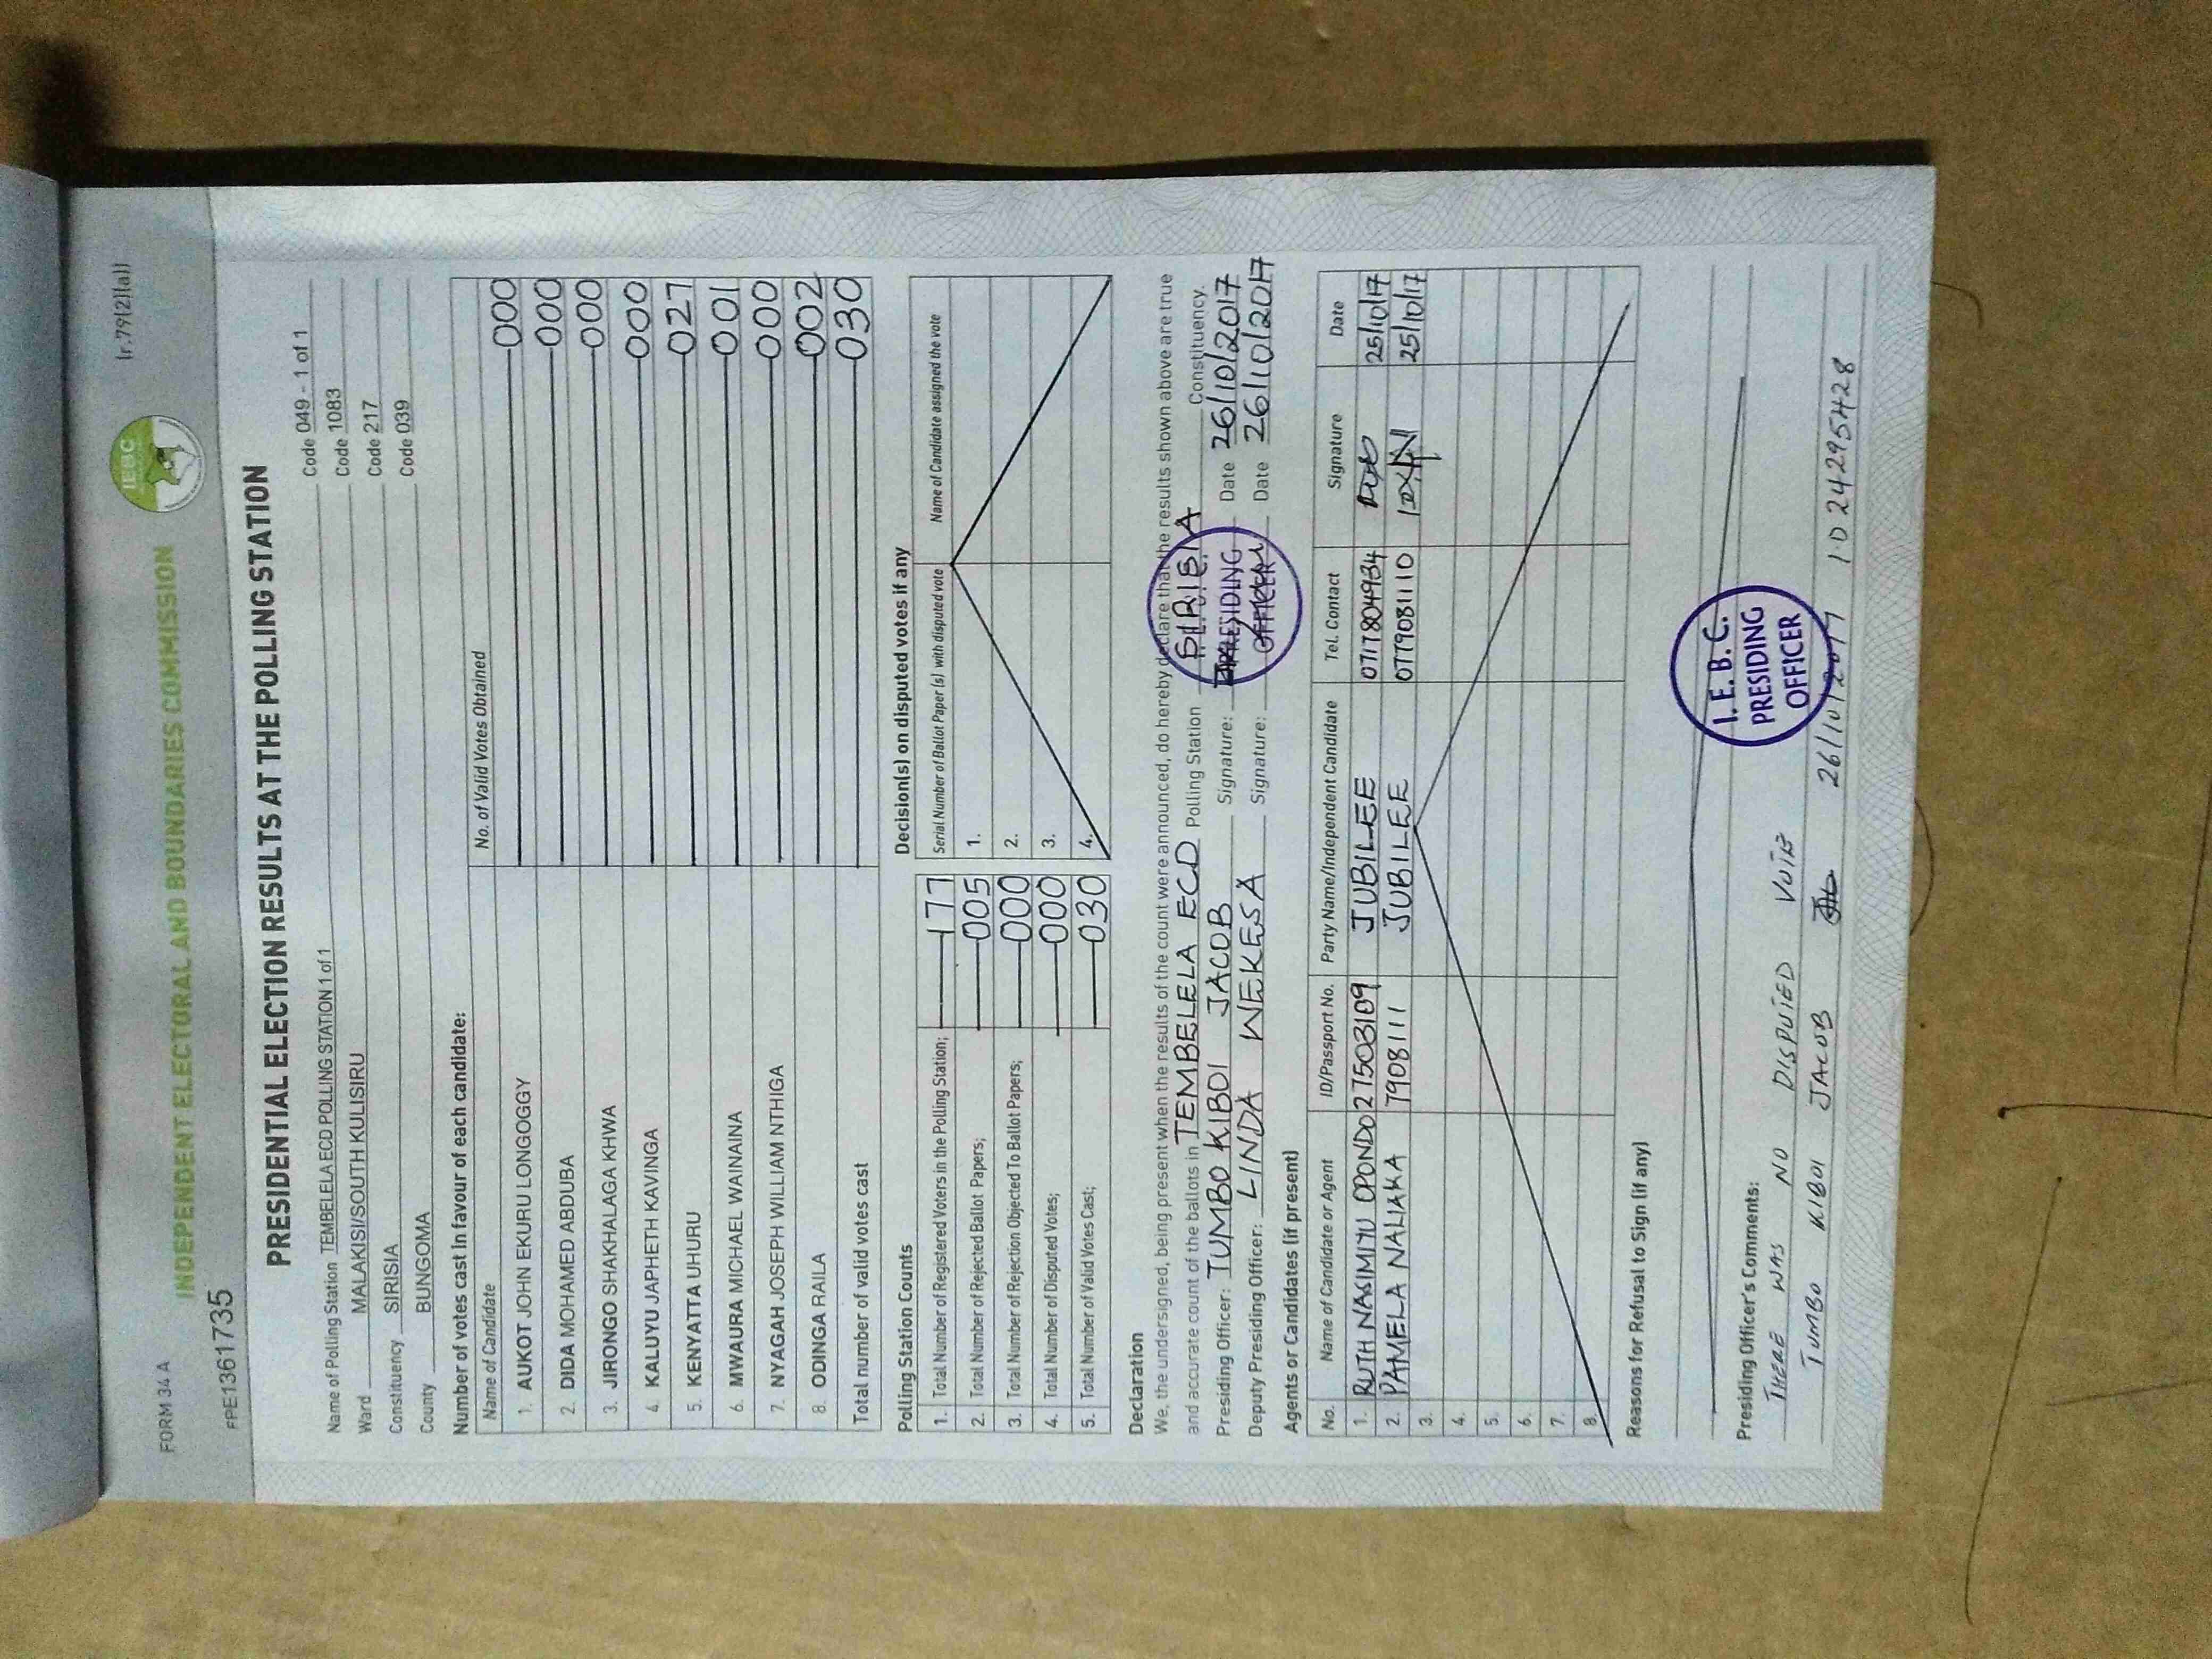 FORM 34 A
(r.79(2)(a))
IEBC
INDEPENDENT ELECTORAL AND BOUNDARIES COMMISSION
FPE1361735
PRESIDENTIAL ELECTION RESULTS AT THE POLLING STATION
Name of Polling Station TEMBELELA ECD POLLING STATION 1 of 1 Code 049 - 1 of 1
Ward MALAKISI/SOUTH KULISIRU Code 1083
Constituency SIRISIA Code 217
County BUNGOMA Code 039
Number of votes cast in favour of each candidate:
Name of Candidate No. of Valid Votes Obtained
1. AUKOT JOHN EKURU LONGOGGY 000
2. DIDA MOHAMED ABDUBA 000
3. JIRONGO SHAKHALAGA KHWA 000
4. KALUYU JAPHETH KAVINGA 000
5. KENYATTA UHURU 027
6. MWAURA MICHAEL WAINAINA 001
7. NYAGAH JOSEPH WILLIAM NTHIGA 000
8. ODINGA RAILA 002
Total number of valid votes cast 030
Polling Station Counts
1. Total Number of Registered Voters in the Polling Station; 177
2. Total Number of Rejected Ballot Papers; 005
3. Total Number of Rejection Objected To Ballot Papers; 000
4. Total Number of Disputed Votes; 000
5. Total Number of Valid Votes Cast; 030
Decision(s) on disputed votes if any
Serial Number of Ballot Paper (s) with disputed vote Name of Candidate assigned the vote
1.
2.
3.
4.
Declaration
We, the undersigned, being present when the results of the count were announced, do hereby declare that the results shown above are true
and accurate count of the ballots in TEMBELELA ECD Polling Station SIRISIA Constituency.
Presiding Officer: TUMBO KIBOI JACOB Signature: Date 26/10/2017
Deputy Presiding Officer: LINDA WEKESA Signature: Date 26/10/2017
PRESIDING
OFFICER
Agents or Candidates (if present)
No. Name of Candidate or Agent ID/Passport No. Party Name/Independent Candidate Tel. Contact Signature Date
1. RUTH NASIMIYU OPONDO 27503109 JUBILEE 0717804934 25/10/17
2. PAMELA NALIAKA 7908111 JUBILEE 0779081110 25/10/17
3.
4.
5.
6.
7.
8.
Reasons for Refusal to Sign (if any)
I.E.B.C.
PRESIDING
OFFICER
Presiding Officer's Comments:
THERE WAS NO DISPUTED VOTE
TUMBO KIBOI JACOB 26/10/2017 ID 24295428